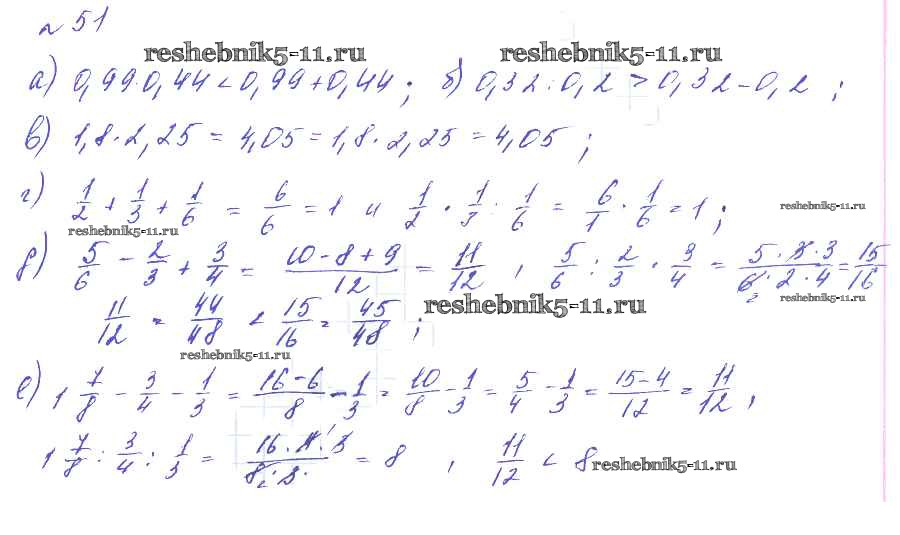 № 51
reshebnik5-11.ru reshebnik5-11.ru
а) 0,99·0,44 < 0,99+0,44; б) 0,32:0,2 > 0,32-0,2;
в) 1,8·2,25 = 4,05 = 1,8·2,25 = 4,05;
г) 1/2 + 1/3 + 1/6 = 6/6 = 1 и 1/2 · 1/3 : 1/6 = 6/1 · 1/6 = 1; reshebnik5-11.ru
reshebnik5-11.ru
д) 5/6 - 2/3 + 3/4 = (10-8+9)/12 = 11/12, 5/6 : 2/3 · 3/4 = (5·3·3)/(6₂·2·4) = 15/16
reshebnik5-11.ru reshebnik5-11.ru
11/12 = 44/48 < 15/16 = 45/48;
reshebnik5-11.ru
е) 1 7/8 - 3/4 - 1/3 = (16-6)/8 - 1/3 = 10/8 - 1/3 = 5/4 - 1/3 = (15-4)/12 = 11/12,
1 7/8 : 3/4 : 1/3 = = 8, 11/12 < 8 reshebnik5-11.ru